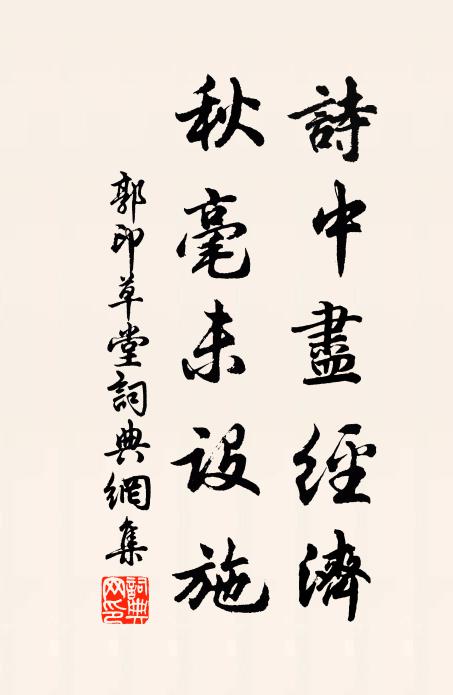 詩中盡經濟
秋毫未設施
郭印草堂詞典網集
詞典網印